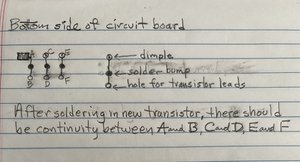 Bottom side of circuit board
A C E
dimple
solder bump
B D F
hole for transistor leads
After soldering in new transistor, there should
be continuity between A and B, C and D, E and F